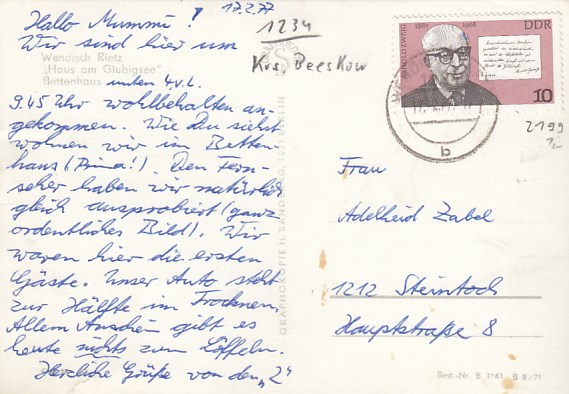 17.2.77
Hallo Mummi!
Wir sind hier um
Wendisch Rietz
„Haus am Glubigsee"
Bettenhaus unten 4.v.l.
9.45 Uhr wohlbehalten an-
gekommen. Wie Du siehst
wohnen wir im Betten-
haus (Prima!). Den Fern-
seher haben wir natürlich
gleich ausprobiert (ganz
ordentliches Bild). Wir
waren hier die ersten
Gäste. Unser Auto steht
zur Hälfte im Trocknen.
Allem Anschein gibt es
heute nichts zum Löffeln.
Herzliche Grüße von den „2"
1234
Krs. Beeskow
ARNOLD ZWEIG
1887 1968
DDR
10
b
2199
1,-
Frau
Adelheid Zabel
1212 Steintoch
Hauptstraße 8
Best.-Nr. B 1141 B 8/71